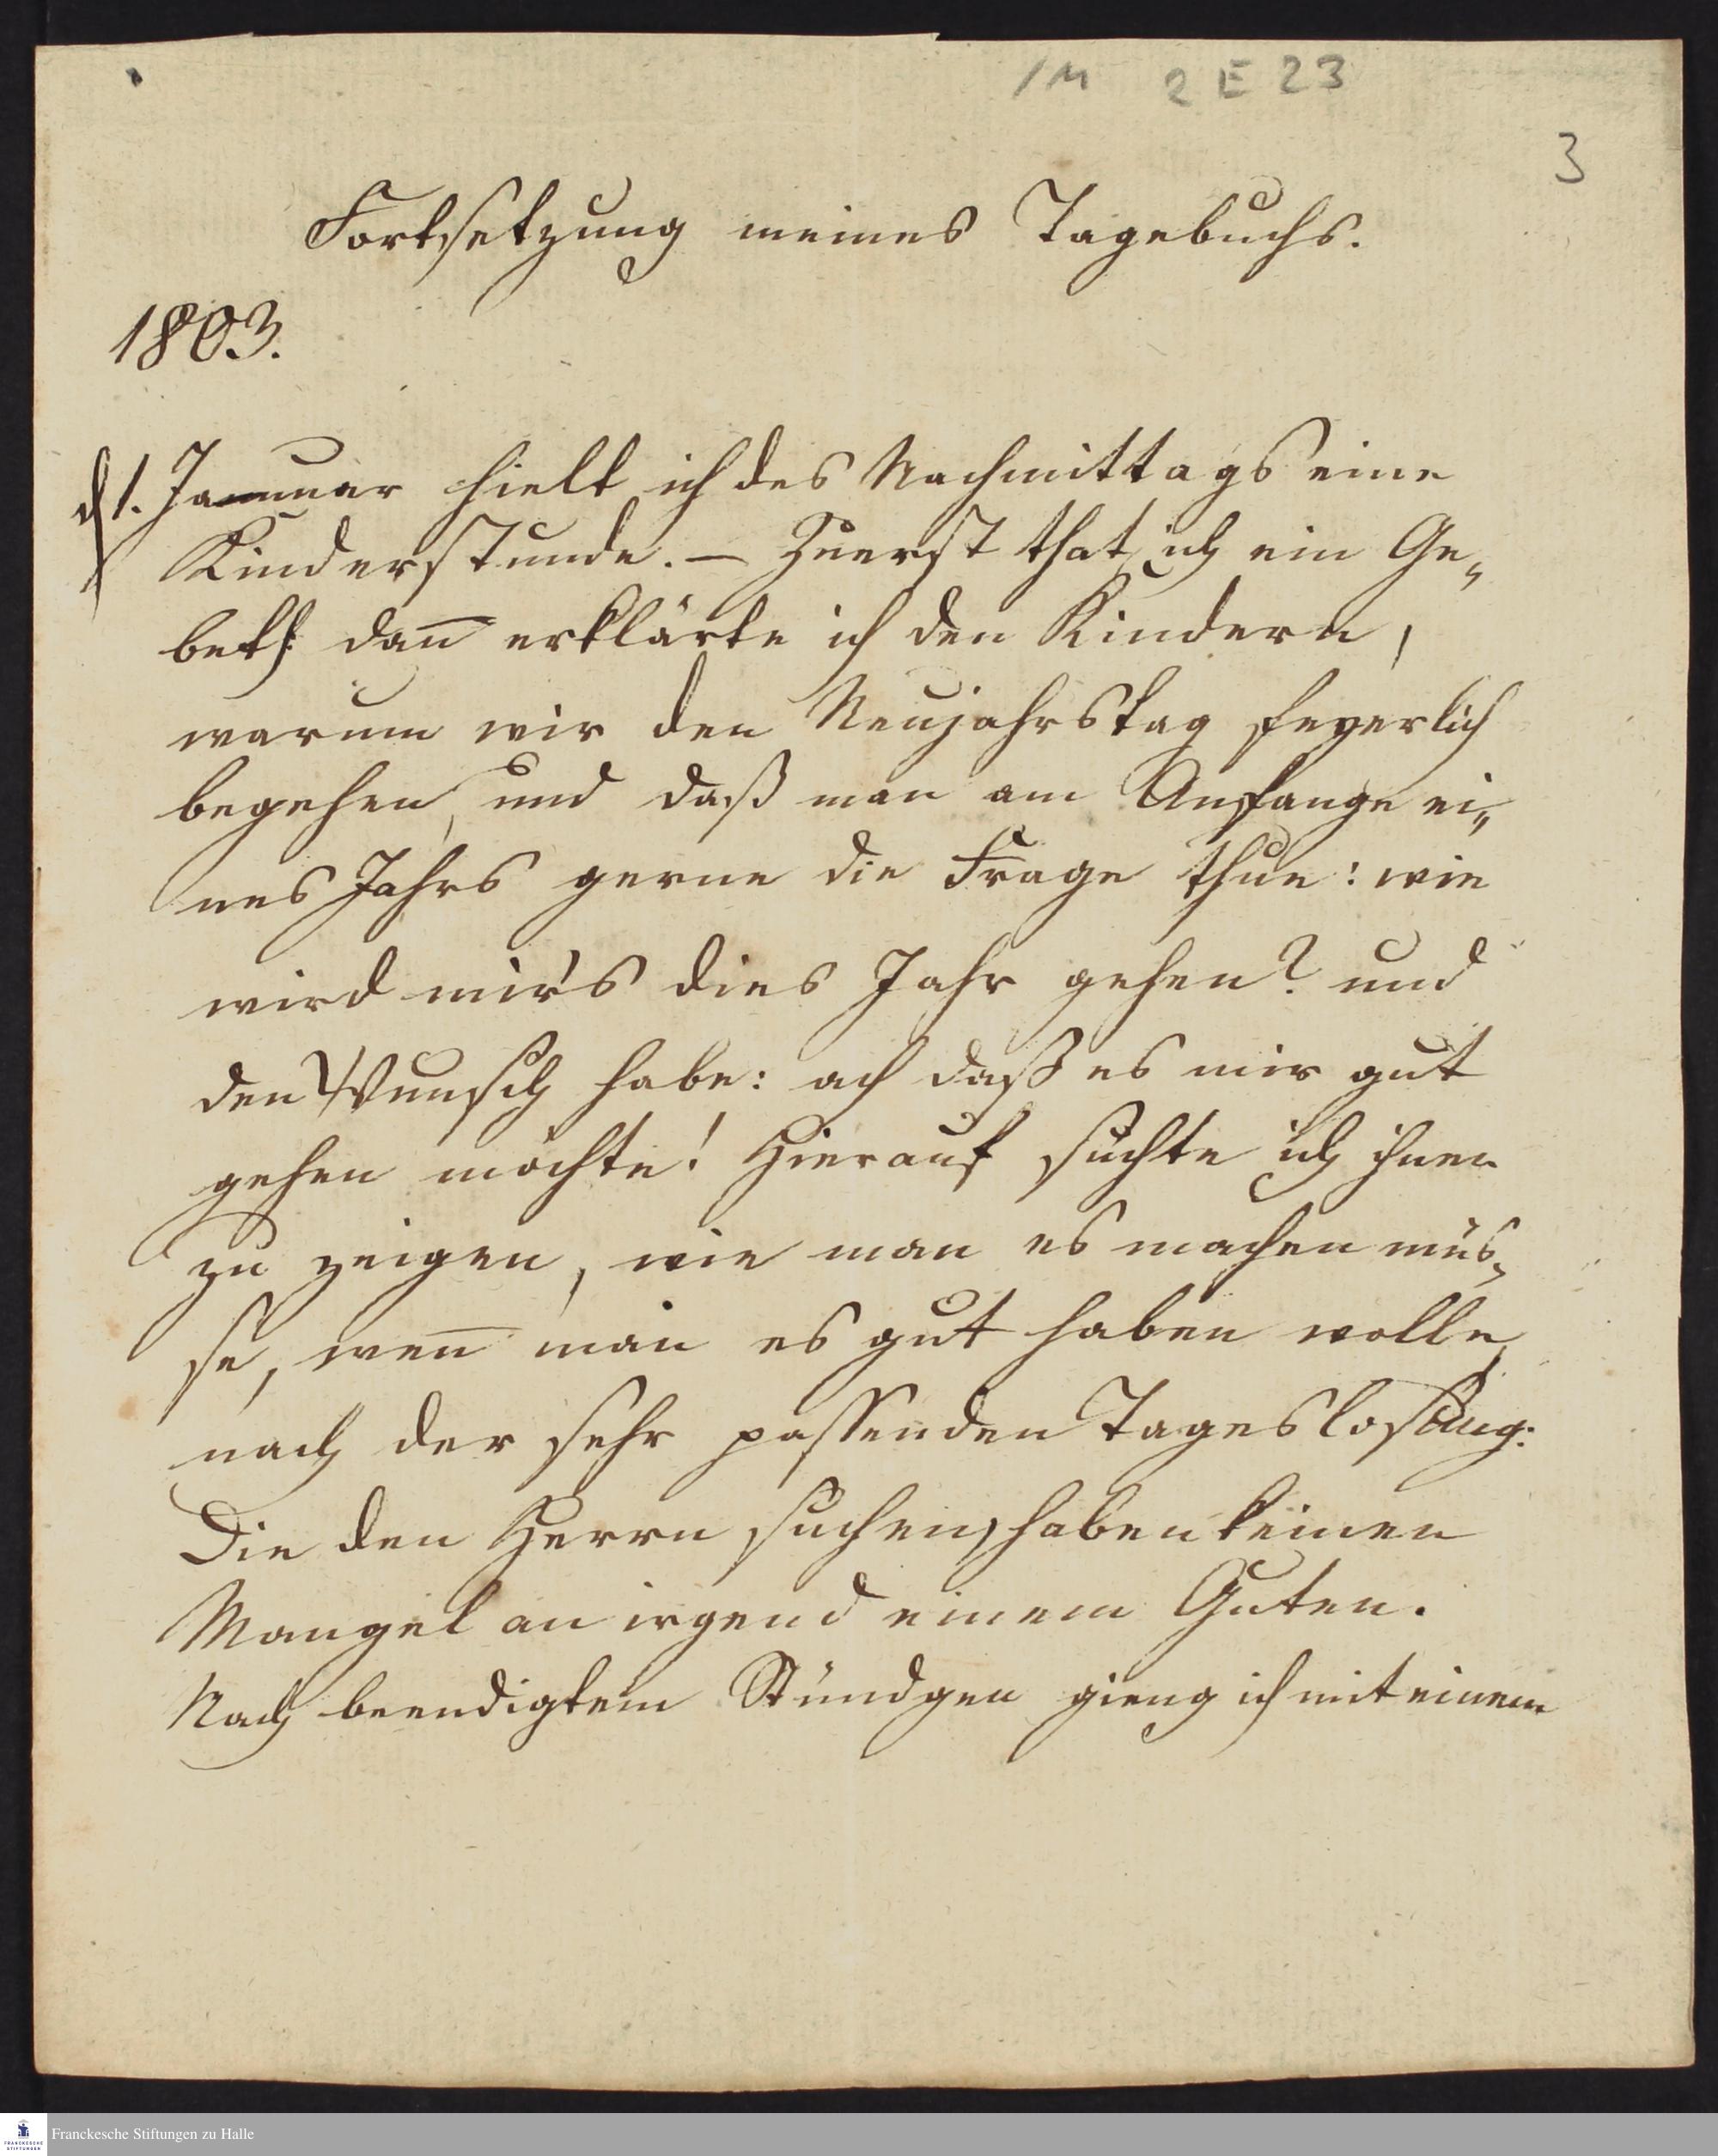 1M 2 E 23
3
Fortsetzung meines Tagebuchs.
1803.
d 1. Januar hielt ich des Nachmittags eine
Kinderstunde. – Zuerst that ich ein Ge„
bet: dan̅ erklärte ich den Kindern,
warum wir den Neujahrstag feyerlich
begehen, und daß man am Anfange ei„
nes Jahrs gerne die Frage thue: wie
wird mir's dies Jahr gehen? und
den Wunsch habe: ach daß es mir gut
gehen möchte! Hierauf suchte ich ihnen
zu zeigen, wie man es machen müs„
se, wen̅ man es gut haben wolle,
nach der sehr passenden Tageslosung:
Die den Herrn suchen, haben keinen
Mangel an irgend einem Guten.
Nach beendigtem Stündgen gieng ich mit einem
FRANCKESCHE STIFTUNGEN
Franckesche Stiftungen zu Halle